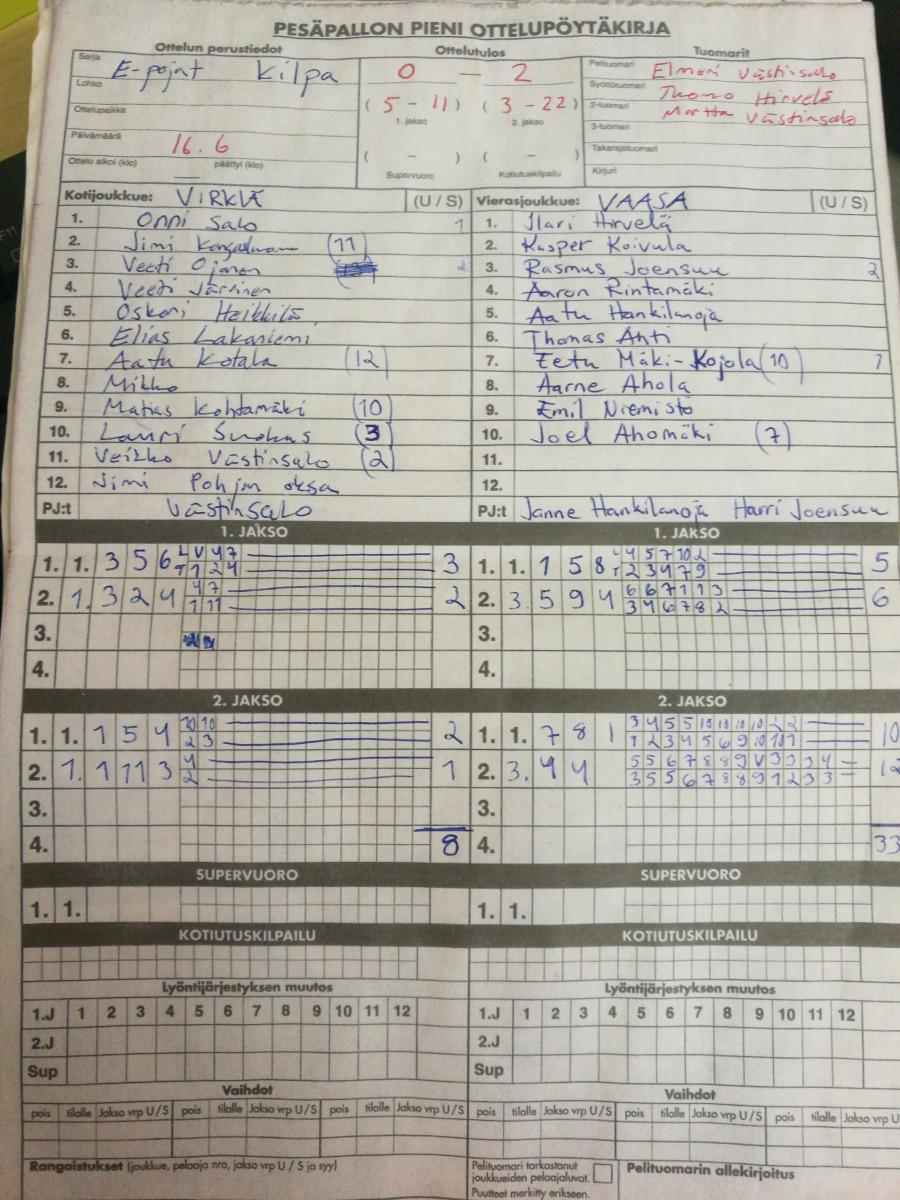 PESÄPALLON PIENI OTTELUPÖYTÄKIRJA
Ottelun perustiedot
Ottelutulos
Tuomarit
Sarja E-pojat Kilpa
Lohko
Ottelupaikka
Päivämäärä 16.6
Ottelu alkoi (klo) päättyi (klo)
0 — 2
(5 - 11) (3 - 22)
1. jakso 2. jakso
( - ) ( - )
Supervuoro Kotiutuskilpailu
Pelituomari Elmeri Västinsalo
Syöttötuomari Thomo Hirvelä
2-tuomari Martta Västinsalo
3-tuomari
Takarajatuomari
Kirjuri
Kotijoukkue: VIRKIÄ (U / S)
1. Onni Salo 1
2. Jimi (11)
3. Veeti Ojanen 2
4. Veeti Järvinen
5. Oskari Heikkilä
6. Elias Lakaniemi
7. Aatu Kotala (12)
8. Mikko
9. Matias Kohtamäki (10)
10. Lauri Suokas (3)
11. Veikko Västinsalo (2)
12. Jimi Pohjan oksa
PJ:t Västinsalo
Vierasjoukkue: VAASA (U / S)
1. Ilari Hirvelä
2. Kasper Koivula
3. Rasmus Joensuu 2
4. Aaron Rintamäki
5. Aatu Hankilanoja
6. Thomas Ahti
7. Eetu Mäki-Kojola (10) 1
8. Aarne Ahola
9. Emil Niemistö
10. Joel Ahomäki (7)
11.
12.
PJ:t Janne Hankilanoja Harri Joensuu
1. JAKSO
1. 1. 3 5 6 L V 4 7 3
T 1 2 4
2. 1. 3 2 4 4 7 2
1 11
3.
4.
1. JAKSO
1. 1. 1 5 8 L 4 5 7 10 2 5
T 2 3 4 7 9
2. 3. 5 9 4 6 6 7 1 1 3 6
3 4 6 7 8 2
3.
4.
2. JAKSO
1. 1. 1 5 4 10 10 2
2 3
2. 1. 1 11 3 4 1
2
3.
4. 8
2. JAKSO
1. 1. 7 8 1 3 4 5 5 10 10 10 10 2 2 10
1 2 3 4 5 6 9 10 11 1
2. 3. 4 4 5 5 6 7 8 8 9 V 3 3 3 4 12
3 5 5 6 7 8 8 9 1 2 3 3
3.
4. 33
SUPERVUORO
1. 1.
SUPERVUORO
1. 1.
KOTIUTUSKILPAILU
KOTIUTUSKILPAILU
Lyöntijärjestyksen muutos
1.J 1 2 3 4 5 6 7 8 9 10 11 12
2.J
Sup
Lyöntijärjestyksen muutos
1.J 1 2 3 4 5 6 7 8 9 10 11 12
2.J
Sup
Vaihdot
pois tilalle Jakso vrp U / S pois tilalle Jakso vrp U / S pois tilalle Jakso vrp U / S
Vaihdot
pois tilalle Jakso vrp U / S pois tilalle Jakso vrp U / S pois tilalle Jakso vrp U / S
Rangaistukset (joukkue, pelaaja nro, jakso vrp U / S ja syy)
Pelituomari tarkastanut
joukkueiden pelaajaluvat.
Puutteet merkitty erikseen.
Pelituomarin allekirjoitus